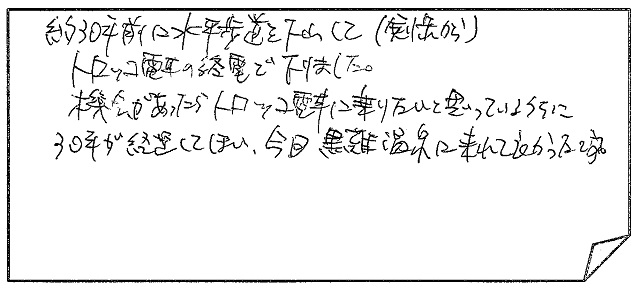 約30年前に水平歩道を下山して(剱岳から)
トロッコ電車の経電で下りました。
機会があったらトロッコ電車に乗りたいと思っているうちに
30年が経過してしまい、今日黒薙温泉に来れて良かったです。